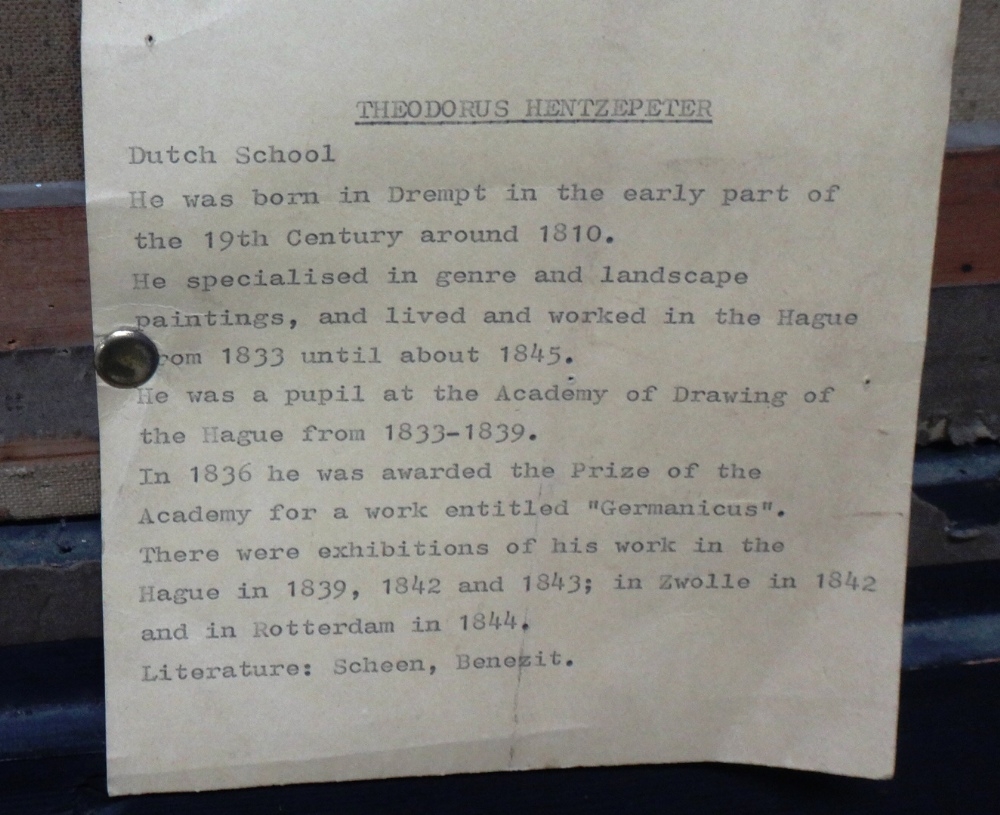 THEODORUS HENTZEPETER
Dutch School
He was born in Drempt in the early part of
the 19th Century around 1810.
He specialised in genre and landscape
paintings, and lived and worked in the Hague
from 1833 until about 1845.
He was a pupil at the Academy of Drawing of
the Hague from 1833-1839.
In 1836 he was awarded the Prize of the
Academy for a work entitled "Germanicus".
There were exhibitions of his work in the
Hague in 1839, 1842 and 1843; in Zwolle in 1842
and in Rotterdam in 1844.
Literature: Scheen, Benezit.